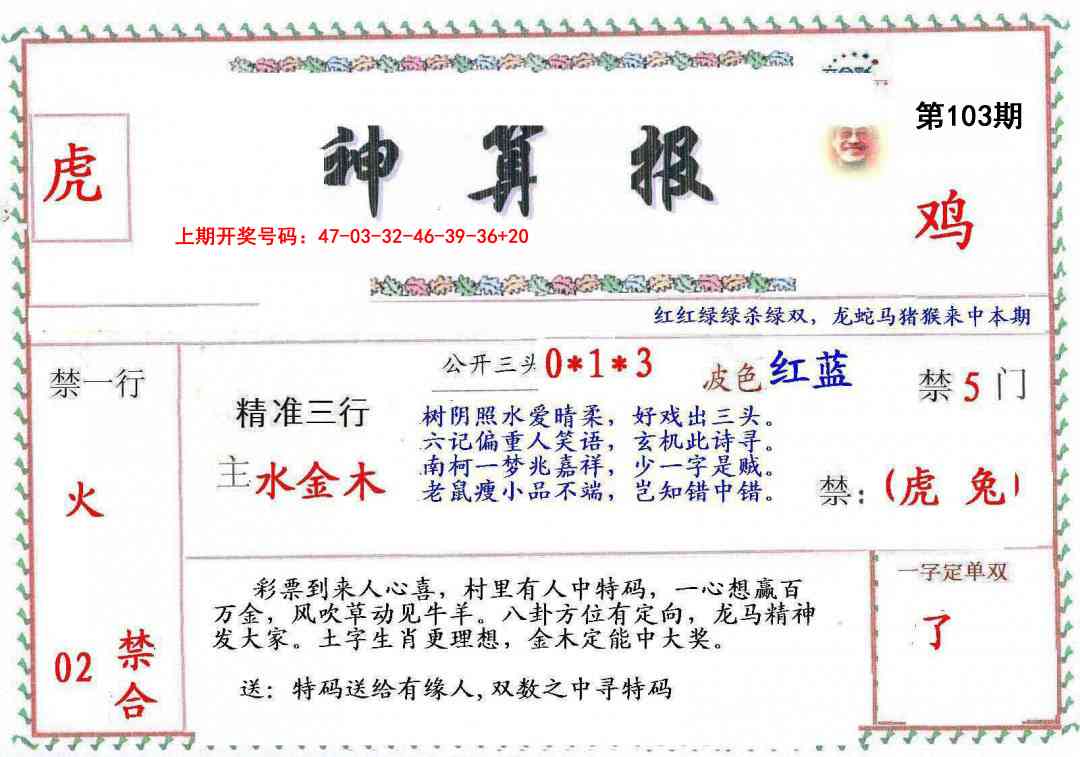 第103期
虎
神算报
鸡
上期开奖号码：47-03-32-46-39-36+20
红红绿绿杀绿双，龙蛇马猪猴来中本期
禁一行
火
02 禁合
公开三头 0*1*3
波色 红蓝
精准三行
主 水金木
树阴照水爱晴柔，好戏出三头。
六记偏重人笑语，玄机此诗寻。
南柯一梦兆嘉祥，少一字是贼。
老鼠瘦小品不端，岂知错中错。
禁 5 门
禁：(虎 兔)
彩票到来人心喜，村里有人中特码，一心想赢百
万金，风吹草动见牛羊。八卦方位有定向，龙马精神
发大家。土字生肖更理想，金木定能中大奖。
送：特码送给有缘人,双数之中寻特码
一字定单双
了